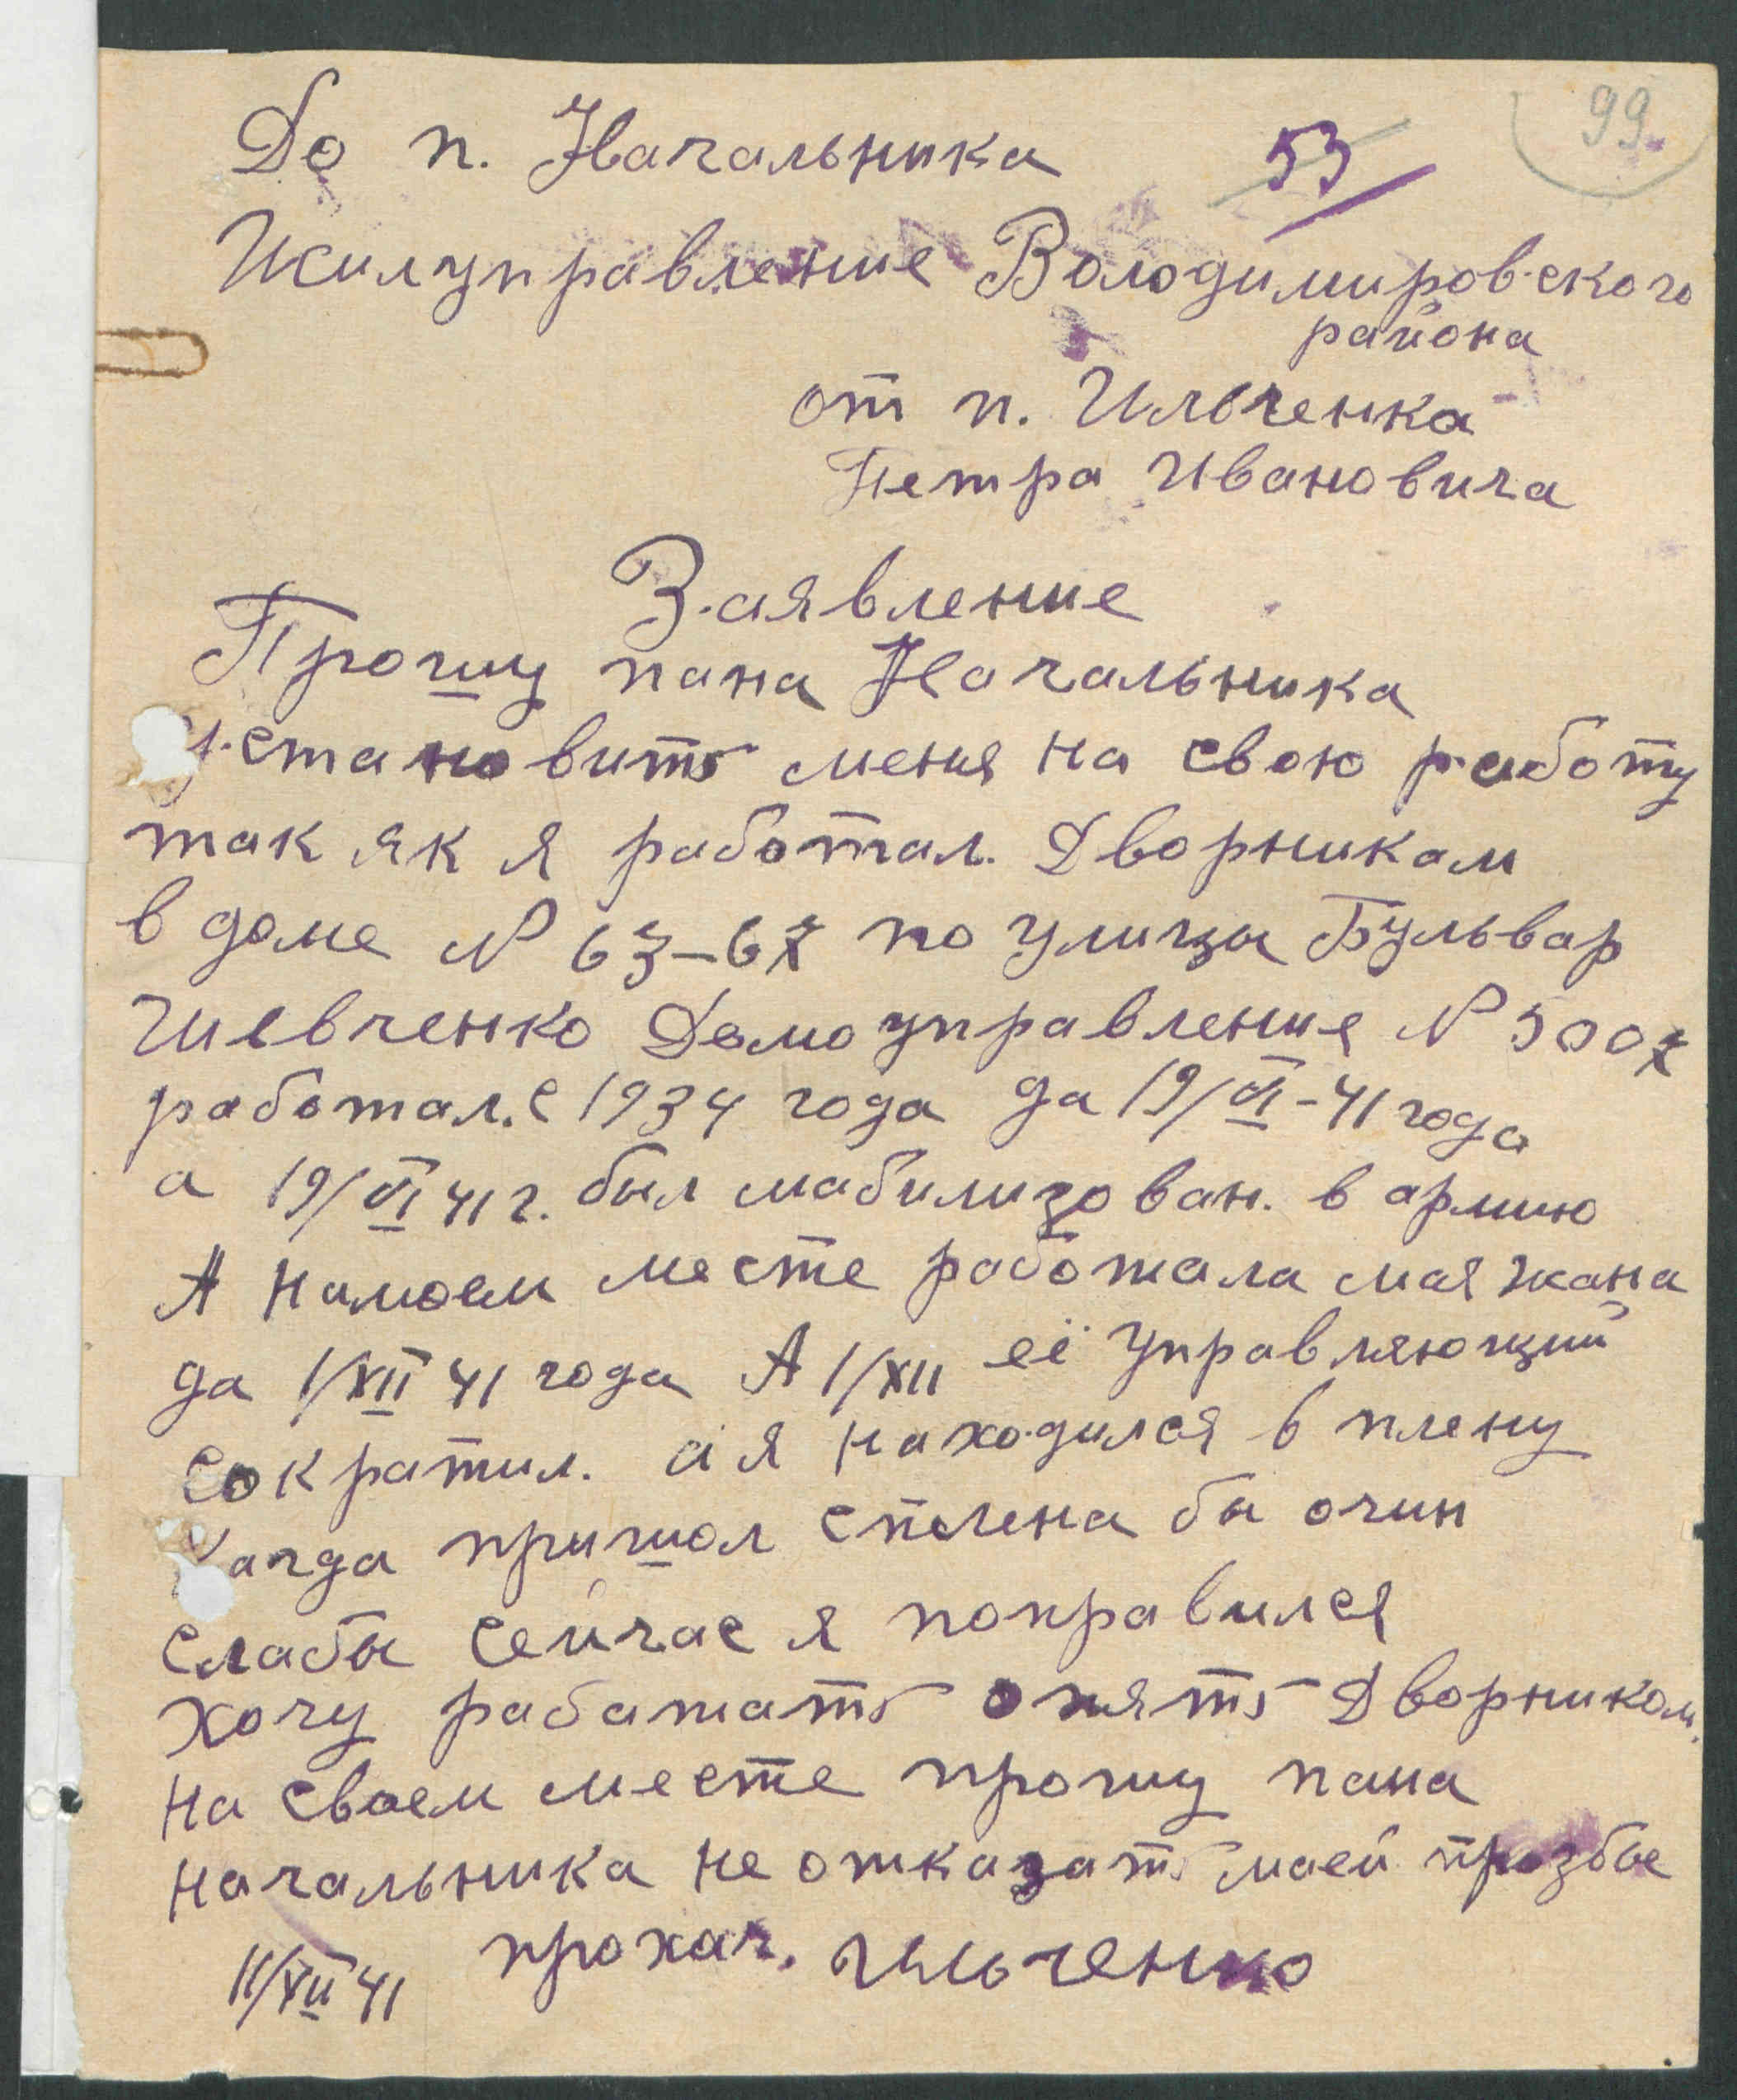 99
53
До п. Начальника
Жилуправление Володимировского
района
от п. Ильченка
Петра Ивановича
Заявление
Прошу пана Начальника
установить меня на свою работу
так як я работал. Дворникам
в доме N 63-67 по улицы Бульвар
Шевченко Домоуправление N 5007
работал. с 1934 года да 19/VI-41 года
а 19/VI 41 г. был мабилизован. в армию
А намоем месте работала мая жана
да 1/XII 41 года А 1/XII её Управляющий
сократил. а я находился в плену
Кагда пришол сплена бы очин
слабы сейчас я поправился
хочу рабатать опять Дворником.
на своем месте прошу пана
начальника не отказать маей прозбе
прохач. Ильченко
11/XII 41